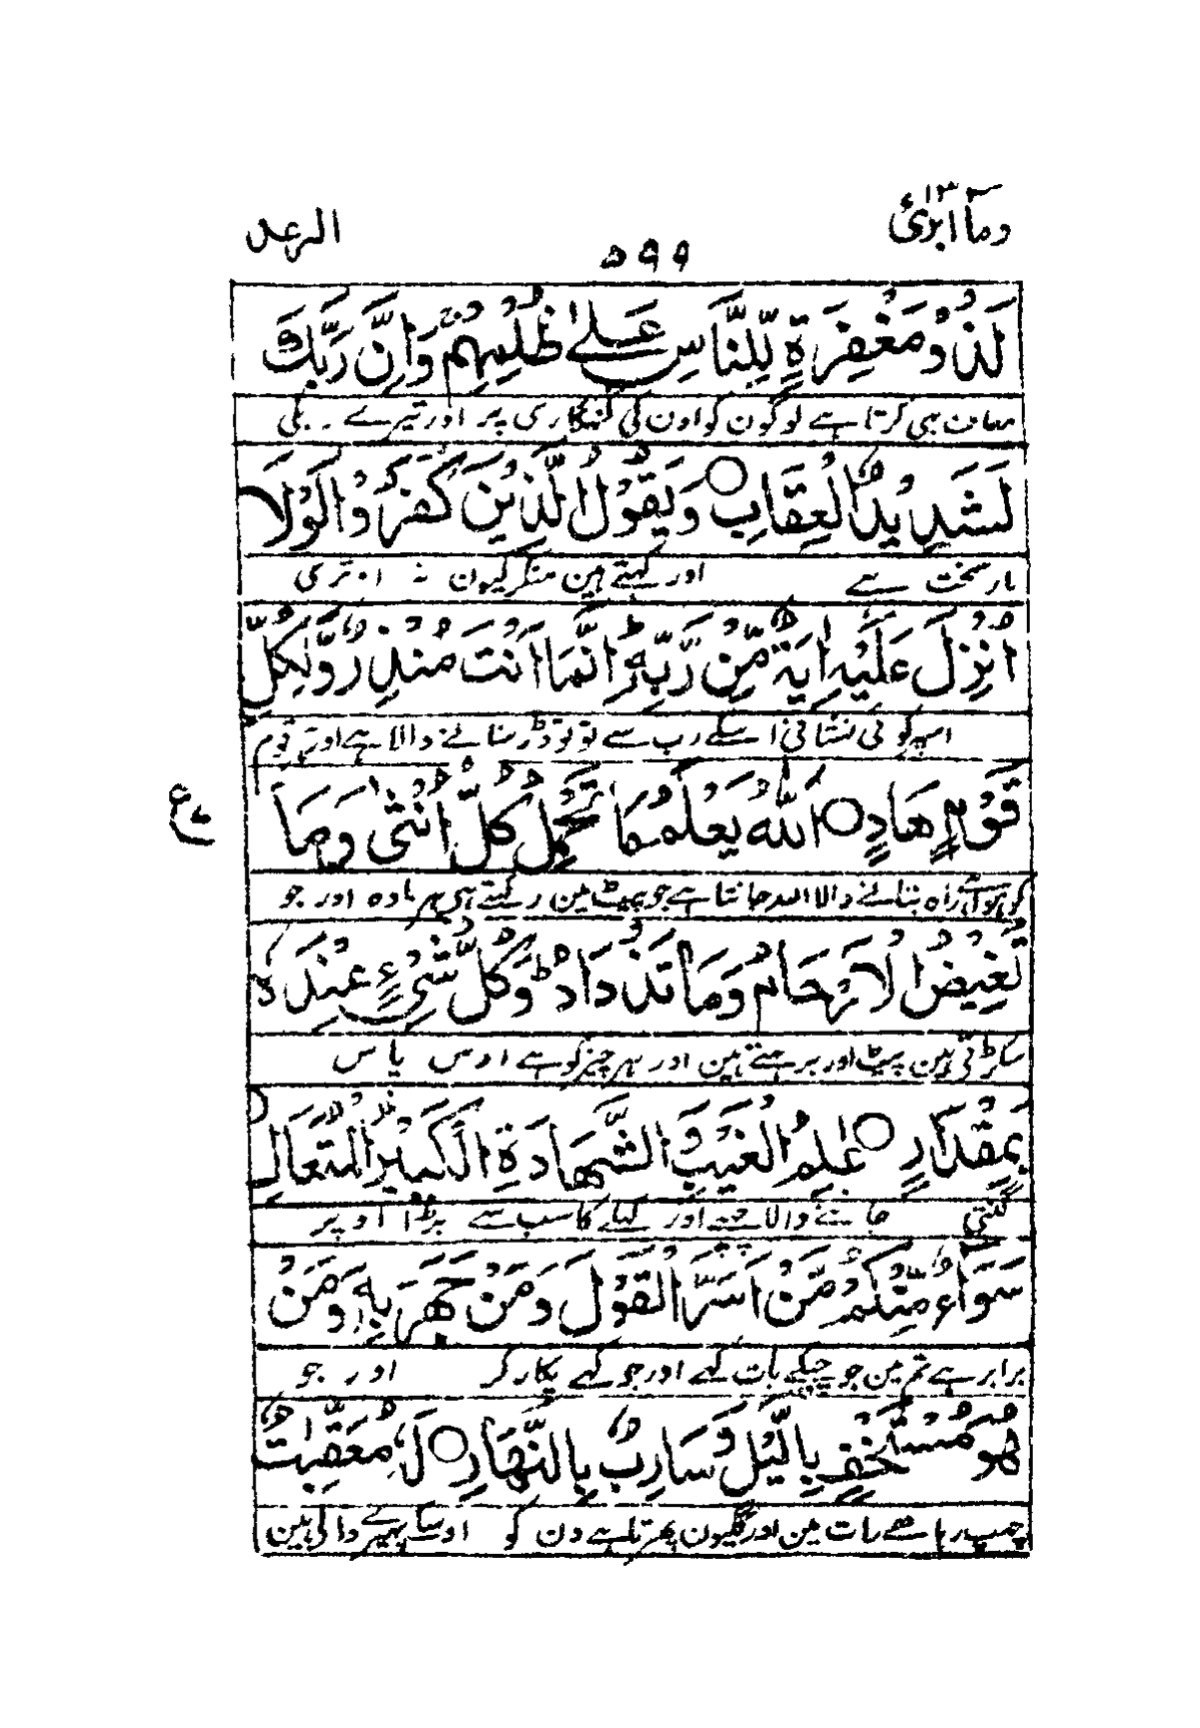 وما ابرئ ١٣
٥٩٩
الرعد
لَذُوْ مَغْفِرَةٍ لِّلنَّاسِ عَلٰى ظُلْمِهِمْ ۚ وَاِنَّ رَبَّكَ
معاف بھی کرتا ہے لوگون کو اون کی گنہگاری پر اور تیرے رب کی
لَشَدِيْدُ الْعِقَابِ ○ وَيَقُوْلُ الَّذِيْنَ كَفَرُوْا لَوْلَا
مار سخت ہے اور کہتے ہین منکر کیون نہ اوتری
اُنْزِلَ عَلَيْهِ اٰيَةٌ مِّنْ رَّبِّهٖ ؕ اِنَّمَا اَنْتَ مُنْذِرٌ وَّلِكُلِّ
اسپر کوئی نشانی اسکے رب سے تو تو ڈر سنانے والا ہے اور ہر قوم
قَوْمٍ هَادٍ ○ اَللّٰهُ يَعْلَمُ مَا تَحْمِلُ كُلُّ اُنْثٰى وَمَا
کو ہوا ہے راہ بتانے والا اللہ جانتا ہے جو پیٹ مین رکھتے ہی ہر مادہ اور جو
ع
تَغِيْضُ الْاَرْحَامُ وَمَا تَزْدَادُ ؕ وَكُلُّ شَيْءٍ عِنْدَهٗ
سکڑتی ہین پیٹ اور بڑھتے ہین اور ہر چیز کو ہے اوس پاس
بِمِقْدَارٍ ○ عٰلِمُ الْغَيْبِ وَالشَّهَادَةِ الْكَبِيْرُ الْمُتَعَالِ ○
گنتی جاننے والا چھپے اور کھلے کا سب سے بڑا اوپر
سَوَآءٌ مِّنْكُمْ مَّنْ اَسَرَّ الْقَوْلَ وَمَنْ جَهَرَ بِهٖ وَمَنْ
برابر ہے تم مین جو چپکے بات کہے اور جو کہے پکار کر اور جو
هُوَ مُسْتَخْفٍ بِالَّيْلِ وَسَارِبٌ بِالنَّهَارِ ○ لَهٗ مُعَقِّبٰتٌ
چھپ رہا ہے رات مین اور گلیون پھرتا ہے دن کو اوسکے پہرے والی ہین